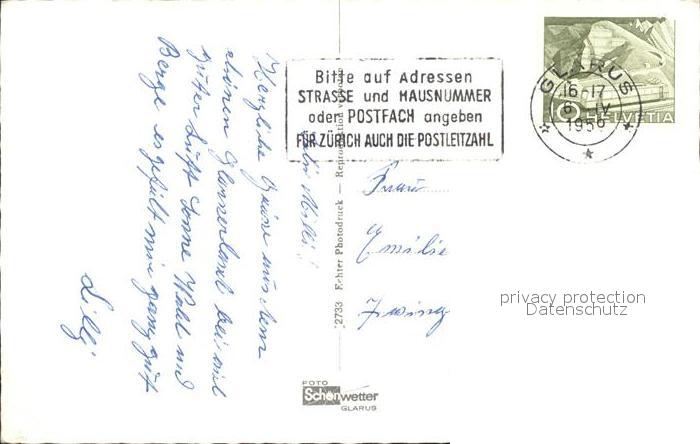 Liebi Milli!
Herzliche Grüsse aus dem
schönen Glarnerland bei viel
guter Luft Sonne Wald und
Berge es gefällt mir ganz gut
Lilly
Bitte auf Adressen
STRASSE und HAUSNUMMER
oder POSTFACH angeben
FÜR ZÜRICH AUCH DIE POSTLEITZAHL
GLARUS
16-17
6. IV
1956
HELVETIA
Frau
Emilie
Zwing
2733 Echter Photodruck — Reproduktion verboten
privacy protection
Datenschutz
FOTO
Schönwetter
GLARUS